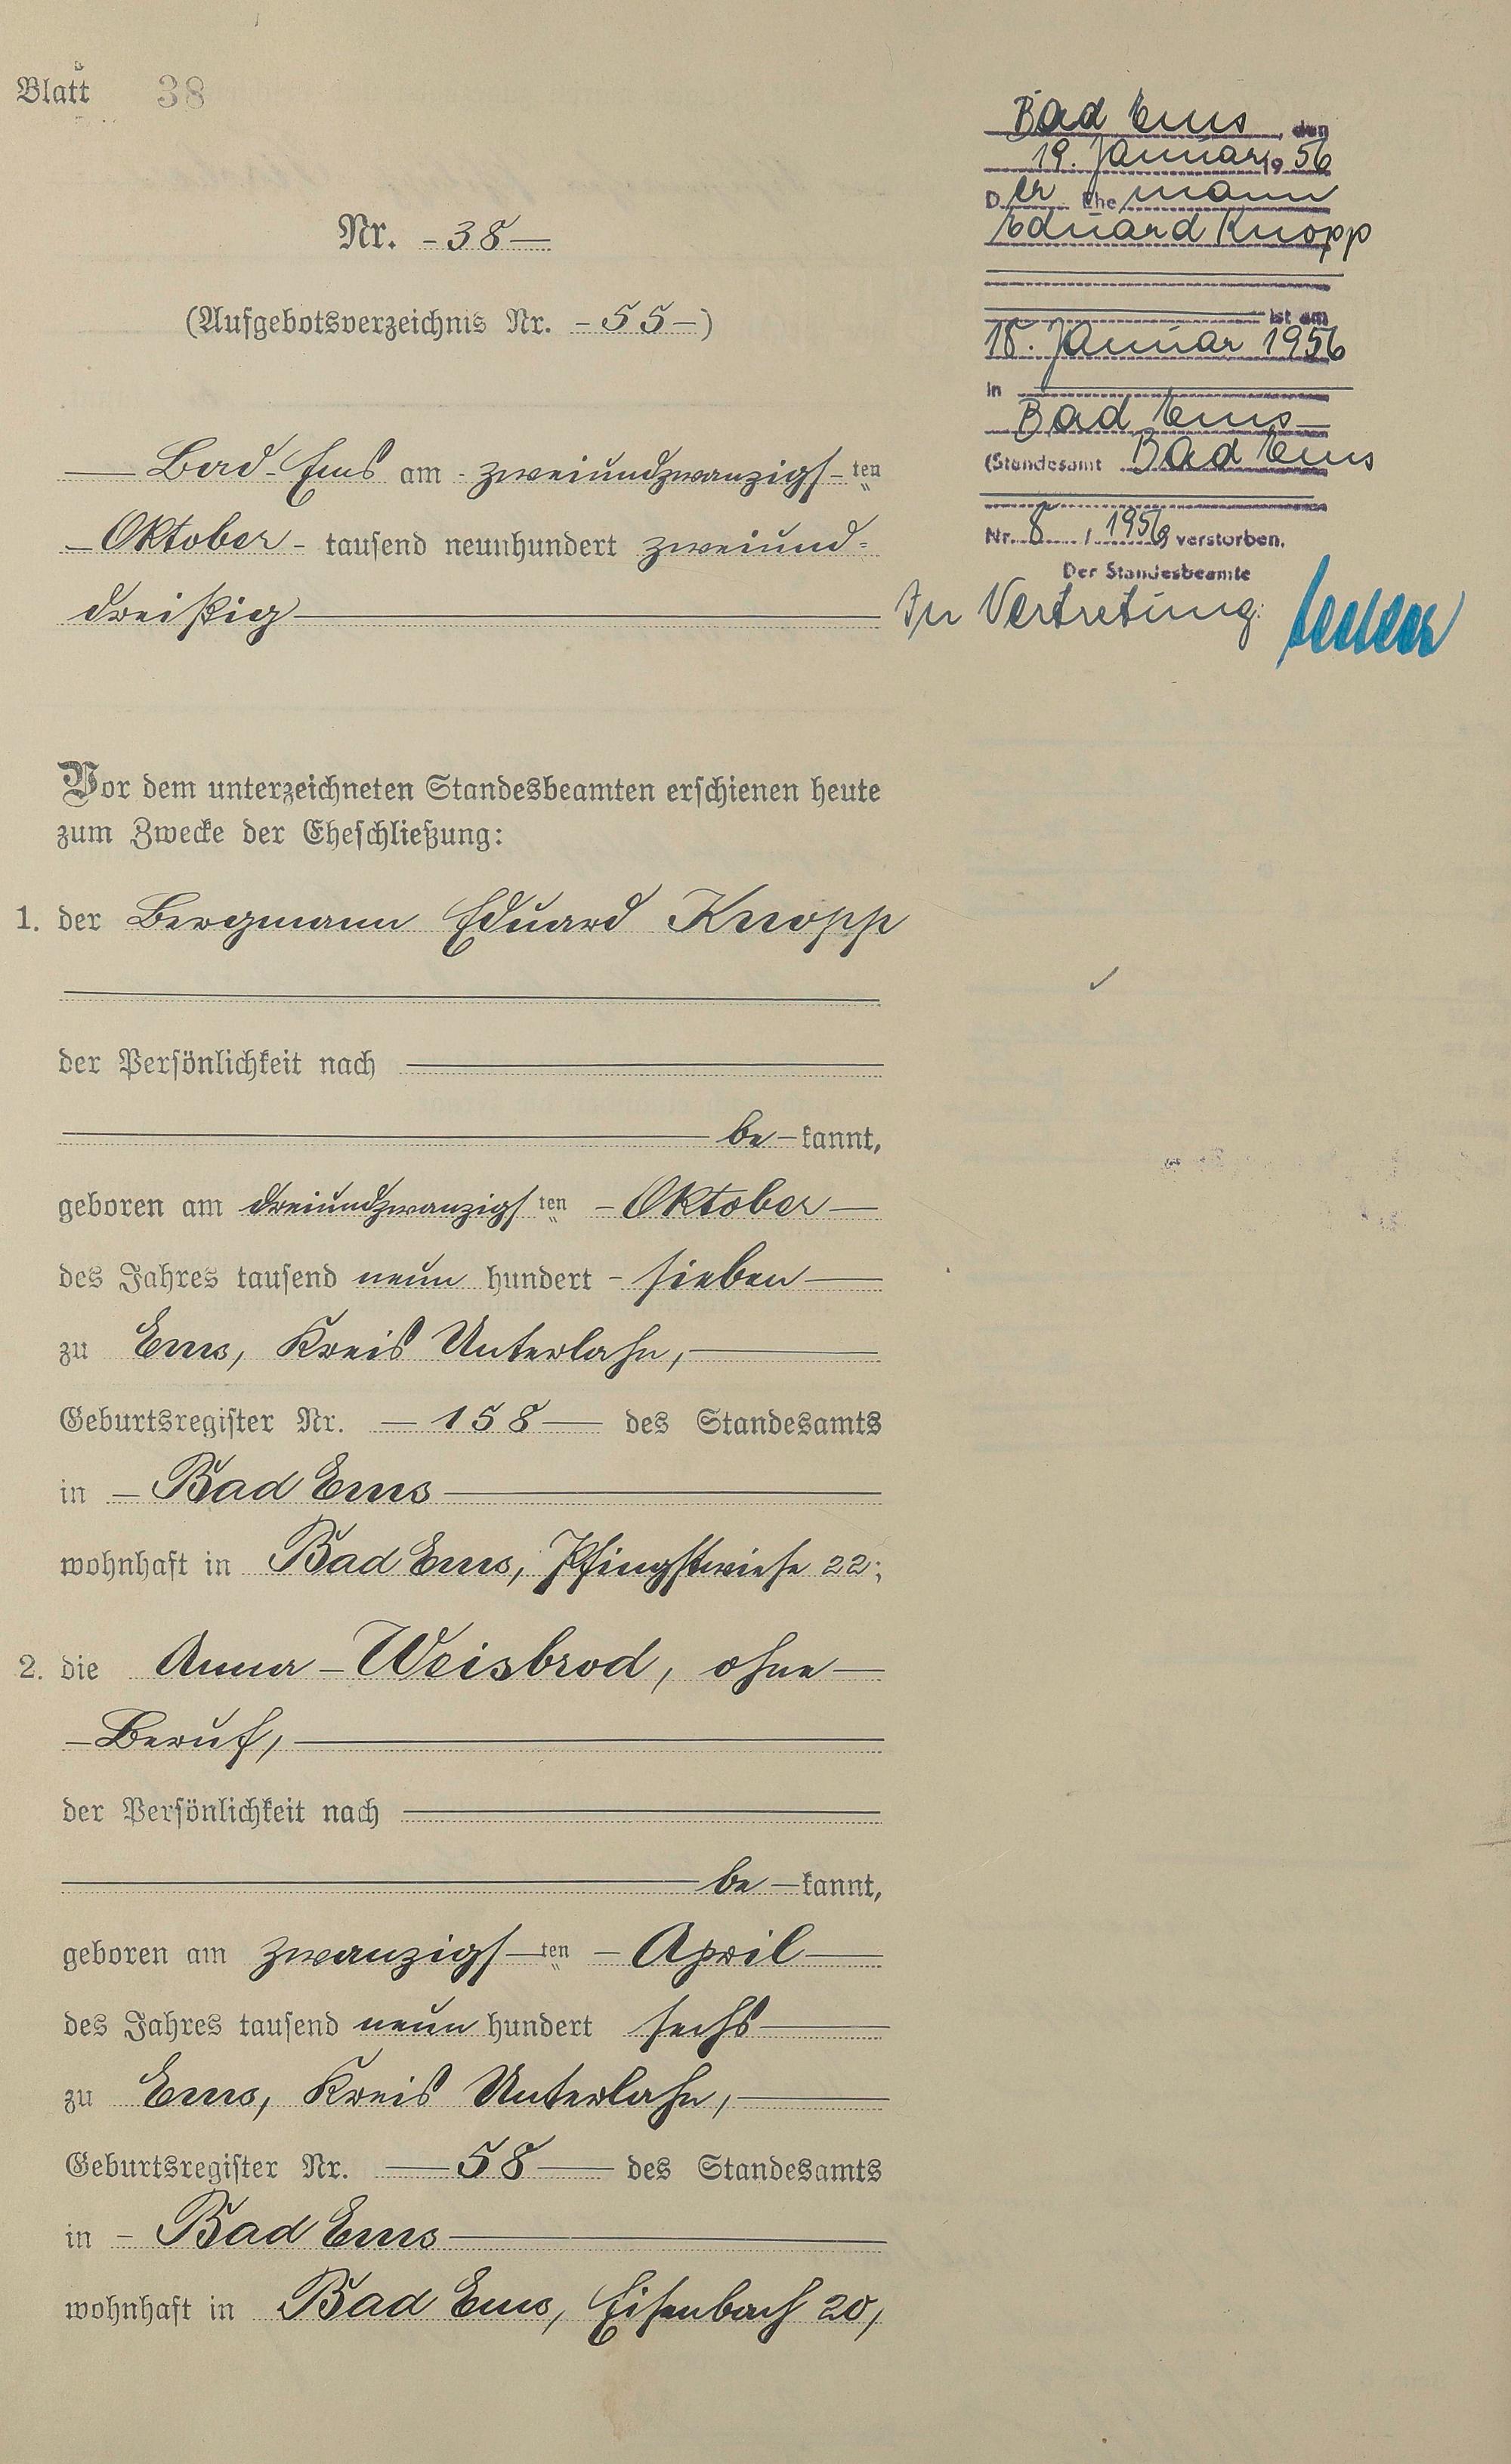 Blatt 38
Nr. - 38 -
(Aufgebotsverzeichnis Nr. - 55 -)
Bad-Ems am - zweiundzwanzigs - ten
- Oktober - tausend neunhundert zweiund-
dreißig
Vor dem unterzeichneten Standesbeamten erschienen heute
zum Zwecke der Eheschließung:
1. der Bergmann Eduard Knopp
der Persönlichkeit nach
be - kannt,
geboren am dreiundzwanzigs ten - Oktober -
des Jahres tausend neun hundert - sieben -
zu Ems, Kreis Unterlahn,
Geburtsregister Nr. - 158 - des Standesamts
in - Bad Ems
wohnhaft in Bad Ems, Pfingstwiese 22;
2. die Anna - Weisbrod, ohne -
- Beruf,
der Persönlichkeit nach
be - kannt,
geboren am zwanzigs - ten - April -
des Jahres tausend neun hundert sechs
zu Ems, Kreis Unterlahn,
Geburtsregister Nr. - 58 - des Standesamts
in - Bad Ems
wohnhaft in Bad Ems, Eisenbach 20,
Bad Ems, den
19. Januar 19 56
D er Ehe mann
Eduard Knopp
ist am
18. Januar 1956
in
Bad Ems
(Standesamt Bad Ems
Nr. 8 / 1956) verstorben.
Der Standesbeamte
In Vertretung: